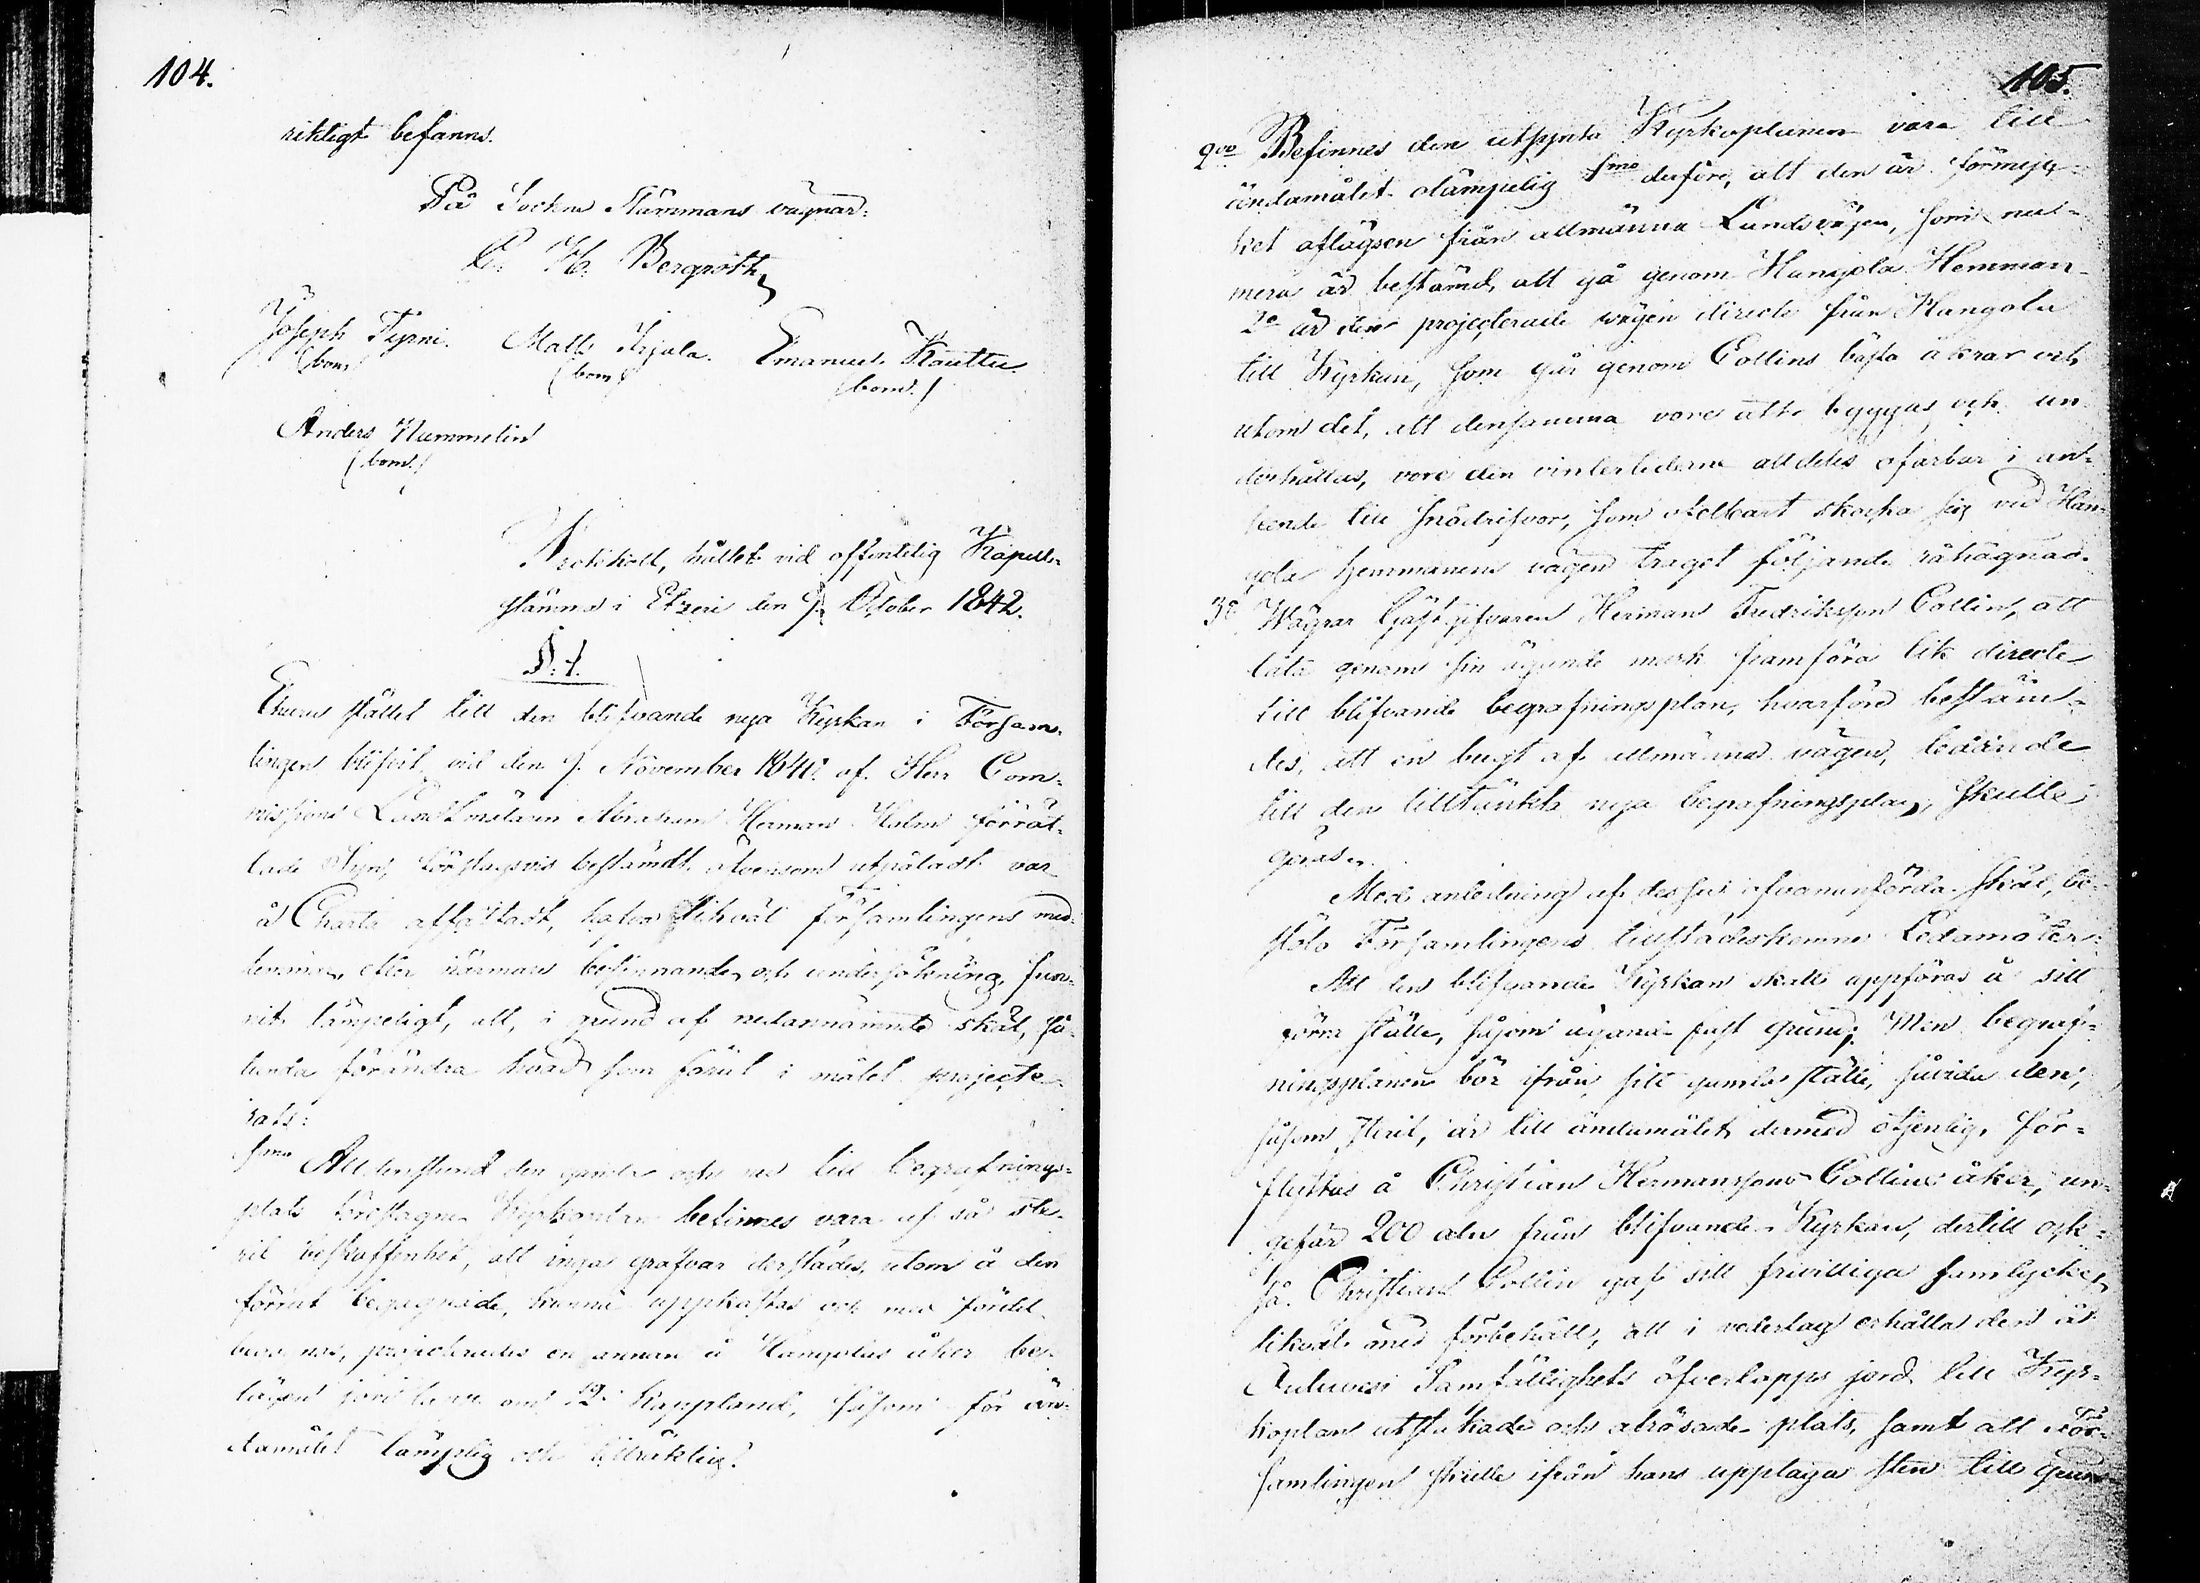 104.
riktigt befanns.
På Sockne Stämmans vägnar:
C. H. Bergroth
Joseph Tyrni. Matts Arjala. Emanuel Kauttu
(bom.) (bom.) (bom.)
Anders Hummelin
(bom.)
Protokoll, hållet vid offentelig Kapell-
stämma i Etzeri den 9 October 1842.
§. 1.
Ehuru stället till den blifvande nya Kyrkan i Försam-
lingen blifvit vid den 9. November 1840 af Herr Com-
missions Landtmätaren Abraham Herman Holm förrät-
tade Syn, förslagsvis bestämdt, äfvensom utpåladt var
å Charta affattadt, hafva likväl församlingens med-
lemmar, efter närmare besinnande och undersökning, fun-
nit lämpeligt, att, i grund af nedannämnde skäl, så-
lunda förändra hvad som förut i målet projecte-
rats:
1mo Alldenstund den gamla och nu till begrafnings-
plats föreslagne Kyrkoplan befinnes vara af så ste-
ril beskaffenhet, att inga grafvar derstädes, utom å den
förrut begagnade, kunna uppkastas och med fördel
, projecterades en annan å Hangolas åker be-
lägen jord om 12 Kappland, såsom för än-
damålet lämplig och tillräcklig.
105.
2do Befinnes den utsynta Kyrkoplanen vara till
ändamålet olämpelig 1mo derföre, att den är förmyc-
ket aflägsen från allmänna Landsvägen, som nu-
mera är bestämd, att gå genom Hangola Hemman
2o är den projecterade vägen directe från Hangola
till Kyrkan, som går genom Collins bästa åkrar och
utom det, att densamma vore att byggas och un-
derhållas, vore den vintertiderne alldeles ofarbar i an-
seende till snödrifvor, som otelbart skocka sig vid Han-
gola hemmanens vägen traget följande råhägnad.
3o Wägrar Gästgifvaren Herman Fredriksson Collin, att
låta genom sin ägande mark framföra lik directe
till blifvande begrafningsplan, hvarföre bestäm-
des, att en bugt af allmänna vägen, ledande
till den tilltänkta nya begrafningsplan, skulle
göras.
Med anledning af dessa ofvananförda skäl, be-
slöto Församlingens tillstädeskomne Ledamöter:
Att den blifvande Kyrkan skall uppföras å sitt
förra ställe, såsom ägande fast grund; Men begraf-
ningsplanen bör ifrån sitt gamla ställe, såvida den,
såsom steril, är till ändamålet dermed otjenlig, för-
flyttas å Christian Hermansons Collins åker, un-
gefär 200 aln från blifvande Kyrkan, dertill ock-
så Christian Collin gaf sitt frivilliga samtycke,
likväl med förbehåll, att i vederlag erhålla den af
Aulavesi Samfällighets öfverlopps jord till Kyr-
koplan utstakade och afrösade plats, samt att För-
samlingen skulle ifrån hans upptaga sten till grund